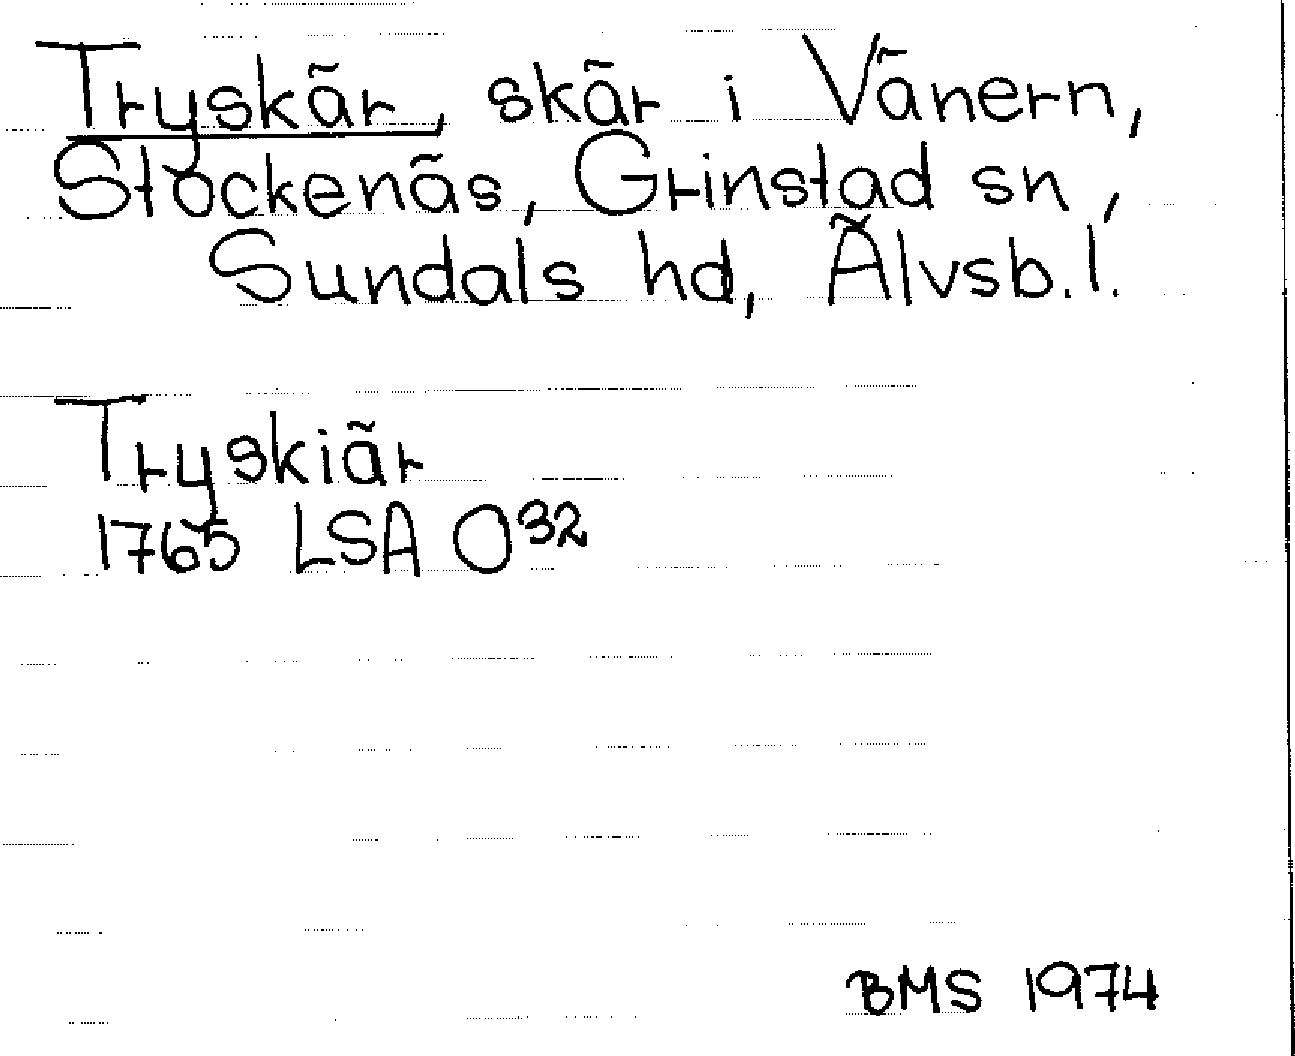 Tryskär, skär i Vänern,
Stockenäs, Grinstad sn,
Sundals hd, Älvsb.l.
Tryskiär
1765 LSA O32
BMS 1974